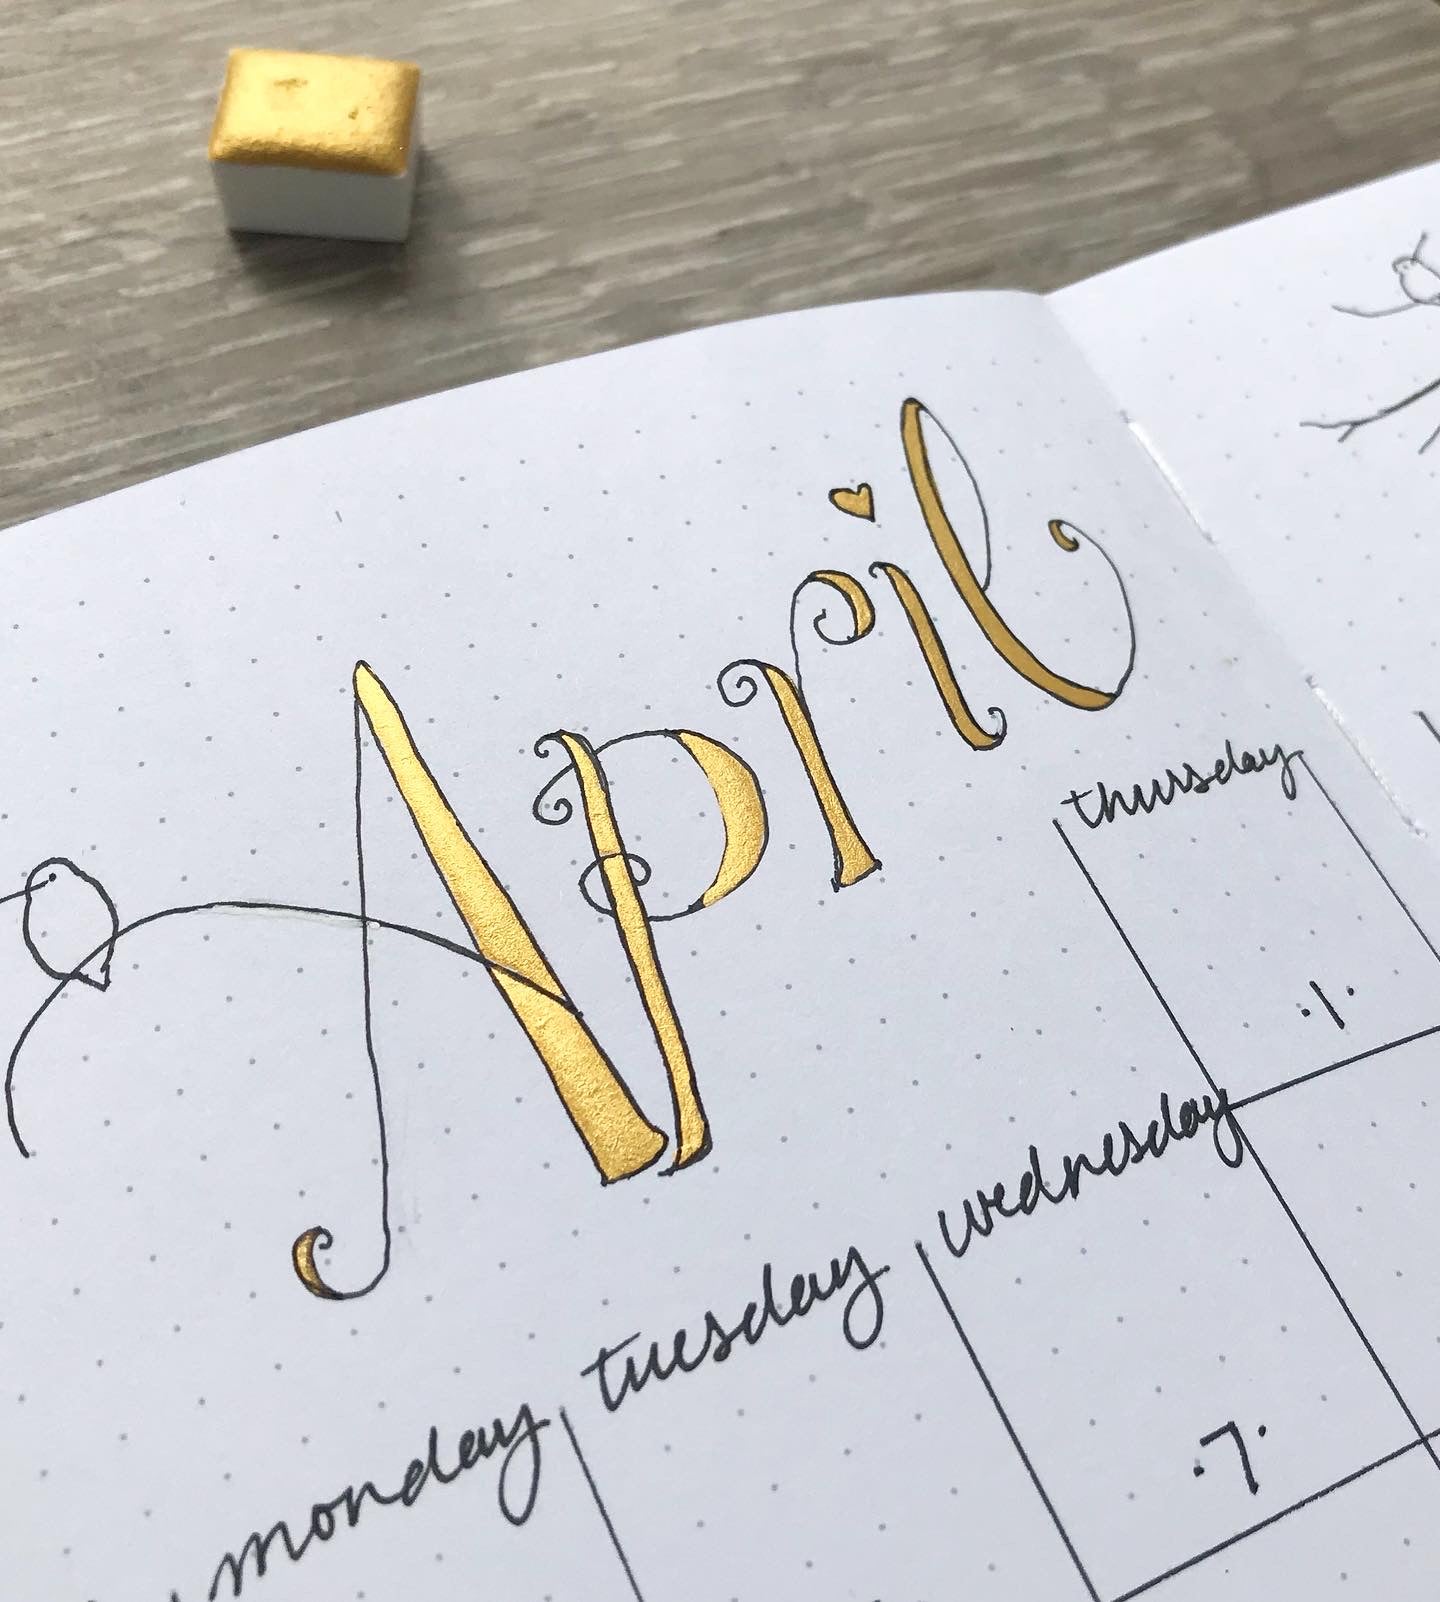 April
monday tuesday wednesday thursday
.1.
.7.